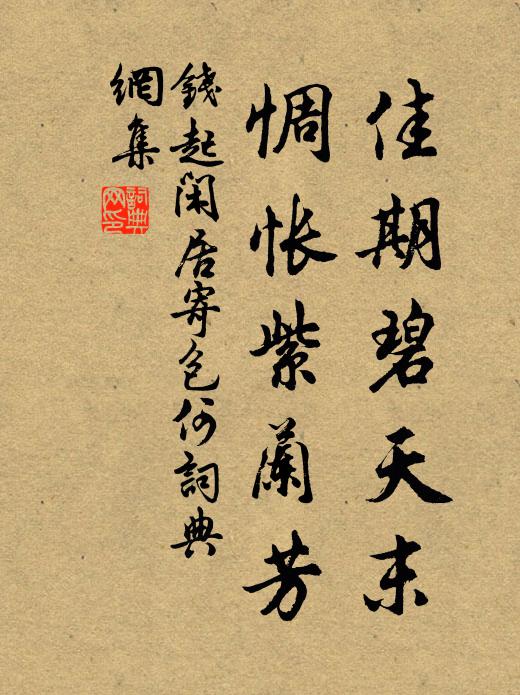 佳期碧天末
惆怅紫蘭芳
錢起閑居寄包何詞典
網集
詞典
网印